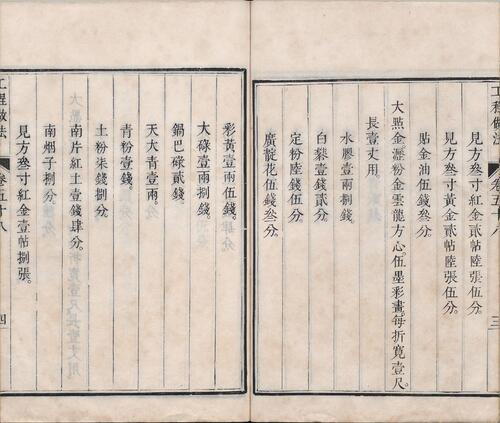 工程做法
卷五十八
三
見方叁寸紅金貳帖陸張伍分。
見方叁寸黃金貳帖陸張伍分。
貼金油伍錢叁分。
大㸃金瀝粉金雲龍方心。伍墨彩畫。每折寬壹尺。
長壹丈用。
水膠壹兩捌錢。
白礬壹錢貳分。
定粉陸錢伍分。
廣靛花伍錢叁分。
彩黃壹兩伍錢。
大碌壹兩捌錢。
鍋巴碌貳錢。
天大青壹兩。
青粉壹錢。
土粉柒錢捌分。
南片紅土壹錢肆分。
南烟子捌分。
見方叁寸紅金壹帖捌張。
工程做法
卷五十八
四